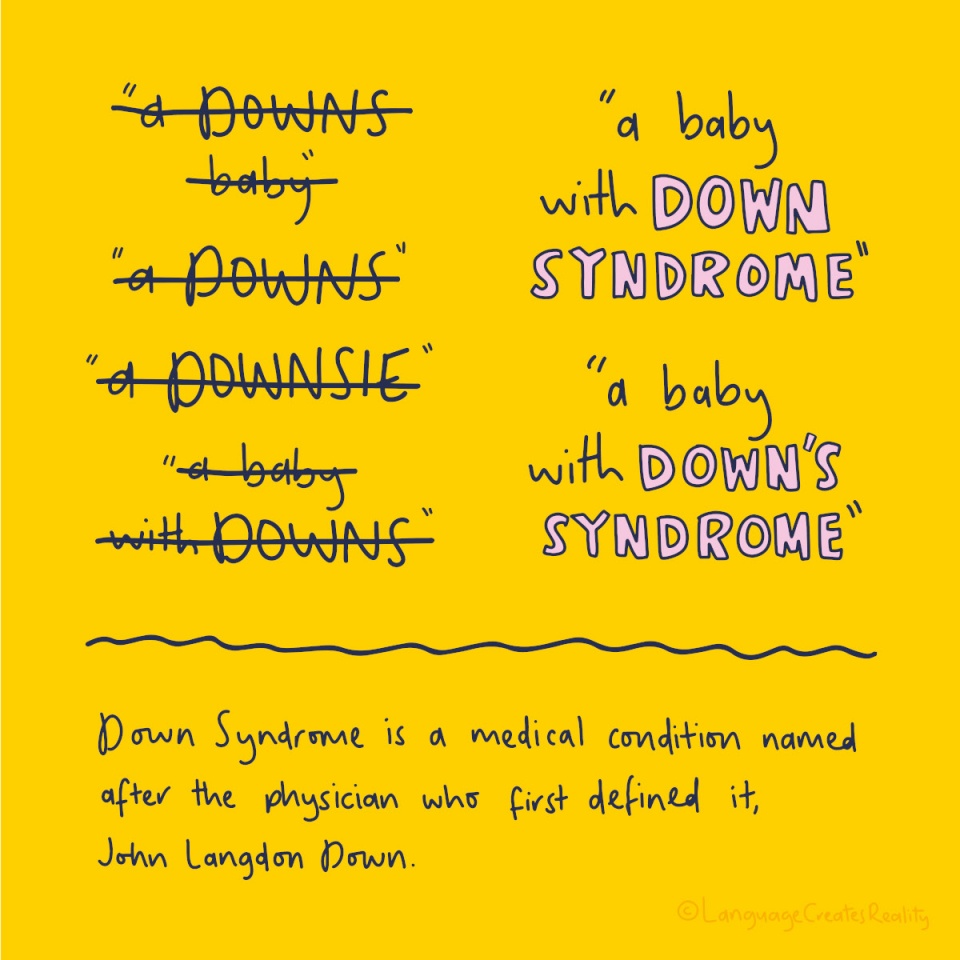 "a DOWNS
baby"
"a DOWNS"
"a DOWNSIE"
"a baby
with DOWNS"
"a baby
with DOWN
SYNDROME"
"a baby
with DOWN'S
SYNDROME"
Down Syndrome is a medical condition named
after the physician who first defined it,
John Langdon Down.
©LanguageCreatesReality